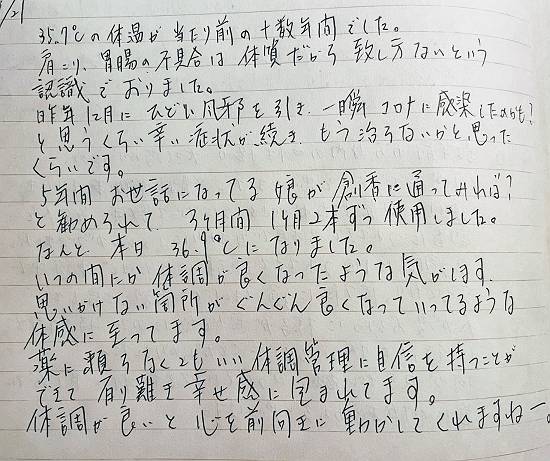 /21
35.7℃の体温が当たり前の十数年間でした。
肩こり、胃腸の不具合は体質だから致し方ないという
認識でおりました。
昨年12月にひどい風邪を引き、一瞬コロナに感染したのかも?
と思うくらい辛い症状が続き、もう治らないかと思った
くらいです。
5年間お世話になってる娘が創香に通ってみれば?
と勧められて、3ヶ月間1ヶ月2本ずつ使用しました。
なんと、本日36.9℃になりました。
いつの間にか体調が良くなったような気がします。
思いがけない箇所がぐんぐん良くなっていってるような
体感に至ってます。
薬に頼らなくてもいい体調管理に自信を持つことが
できて有り難き幸せ感に包まれてます。
体調が良いと心を前向きに動かしてくれますねー。